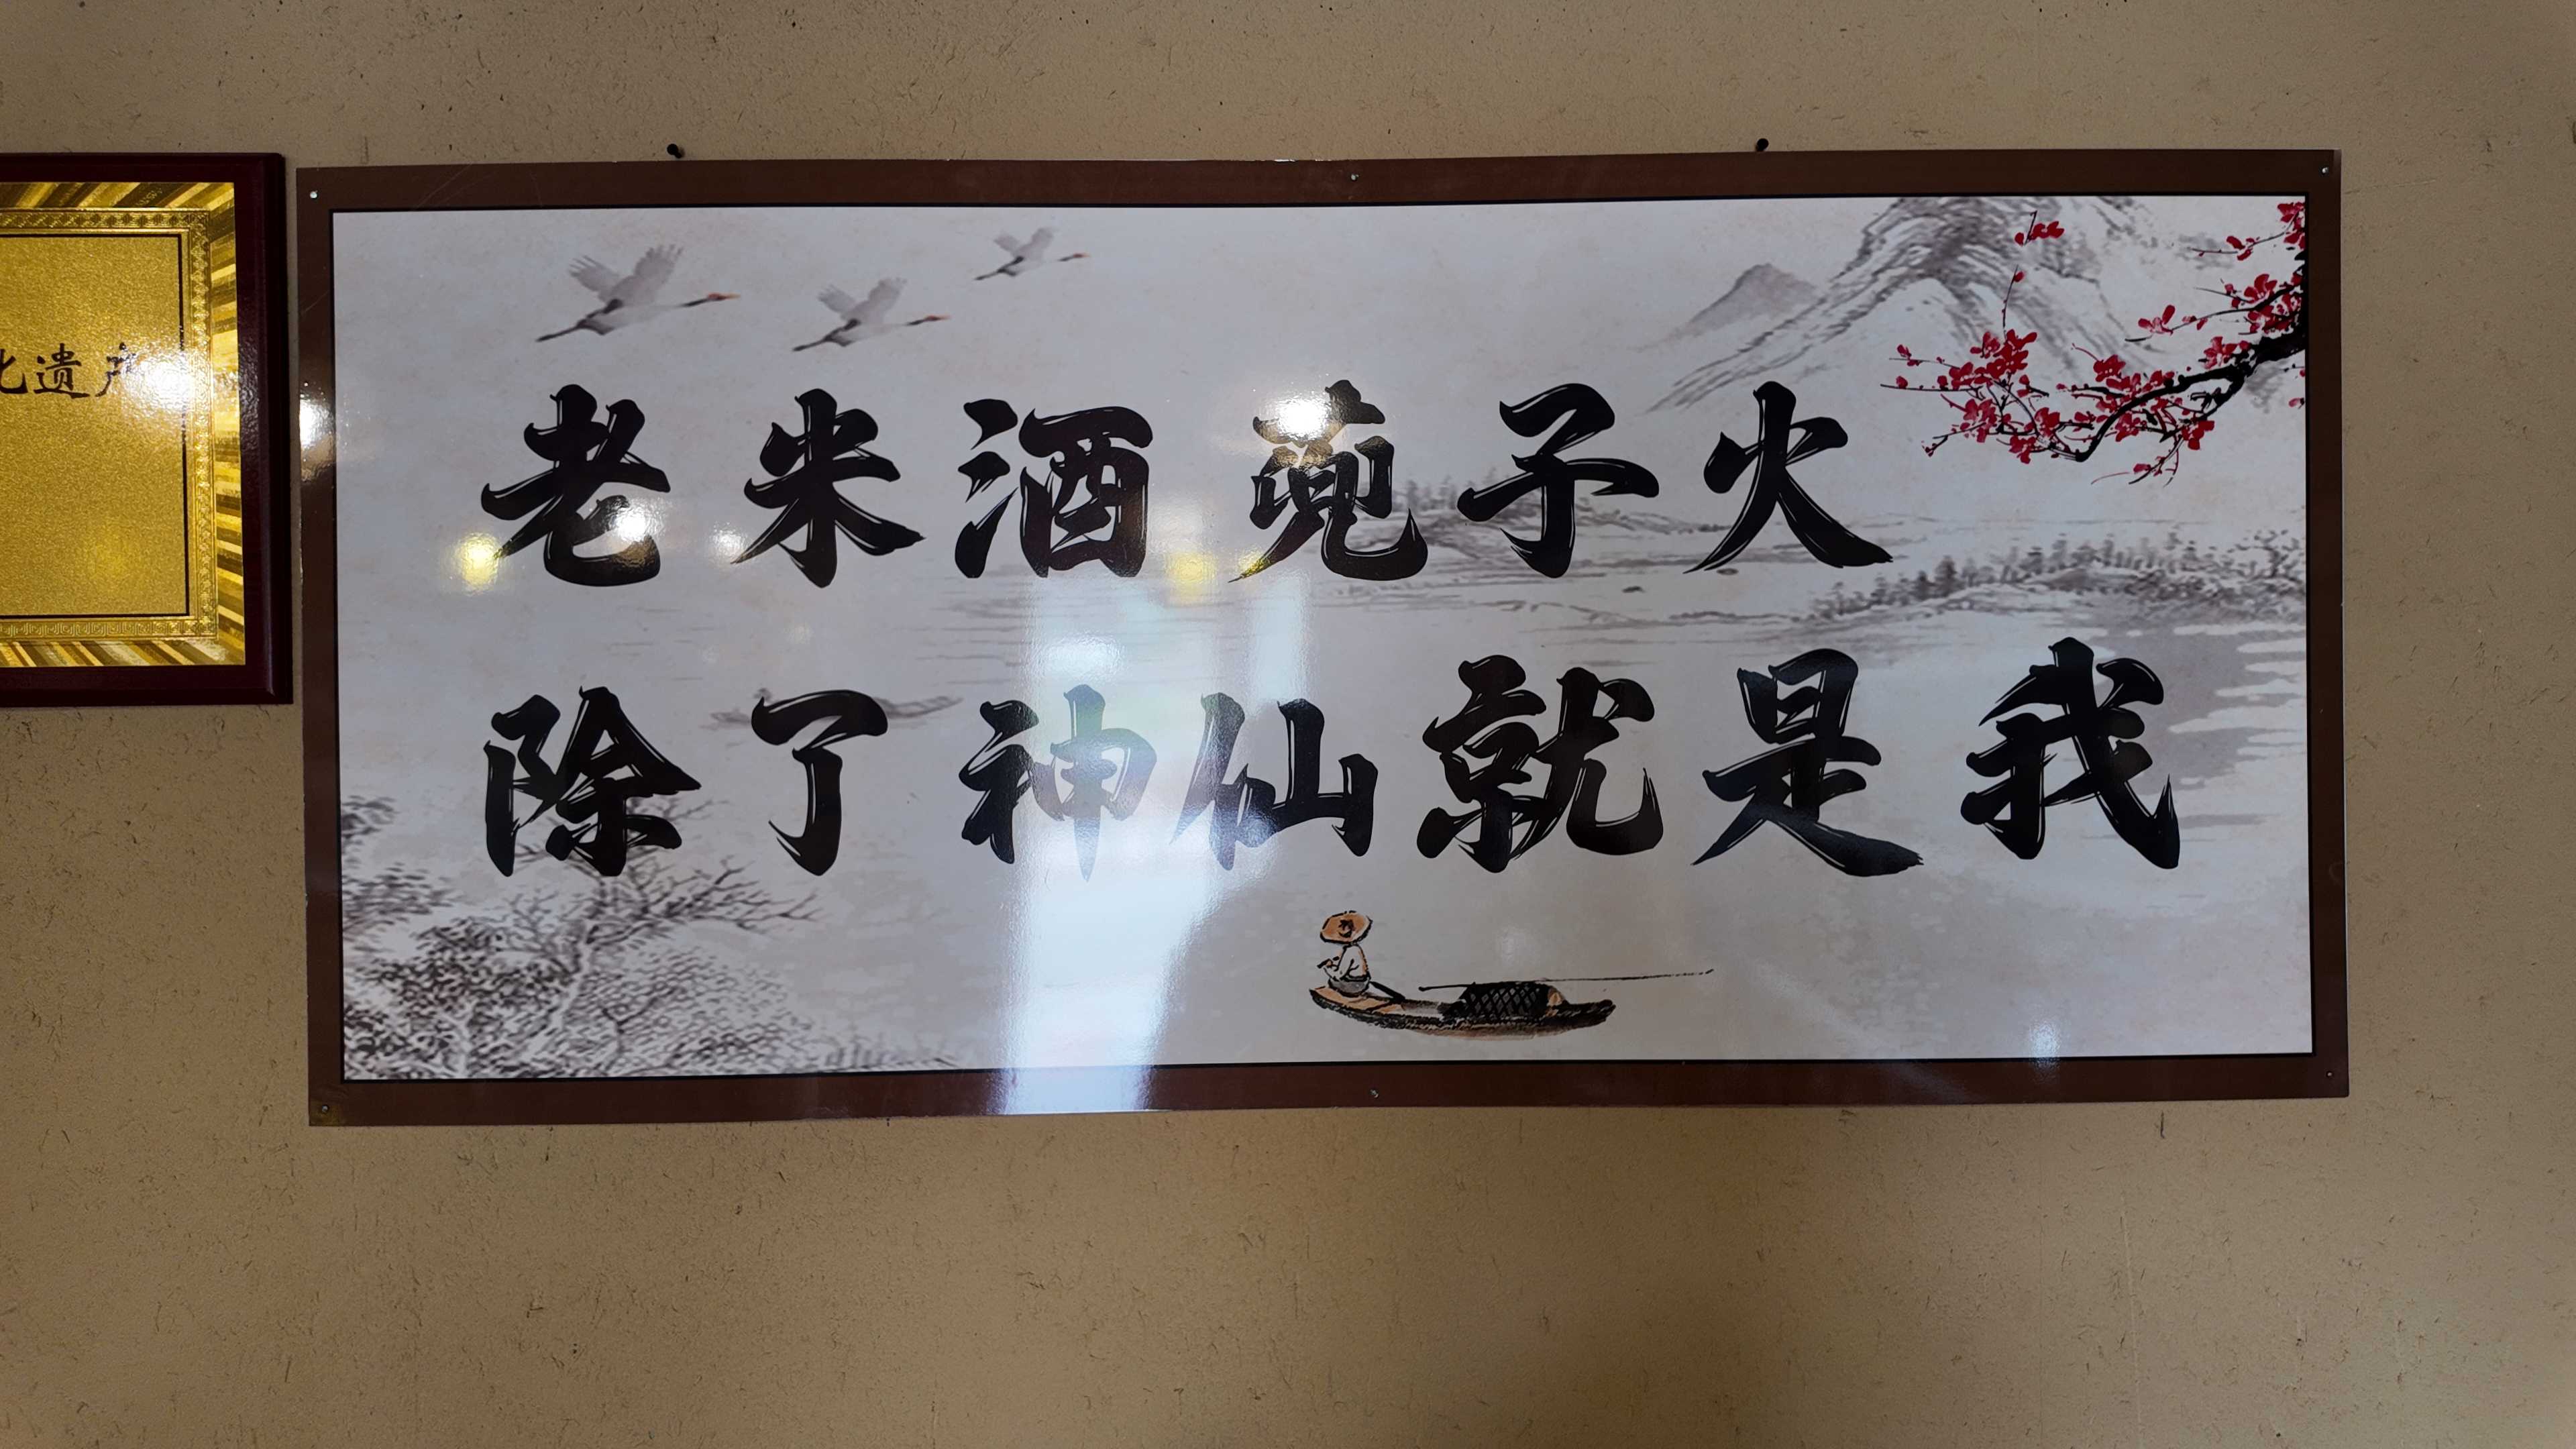 遗产
老米酒 蔸子火
除了神仙就是我